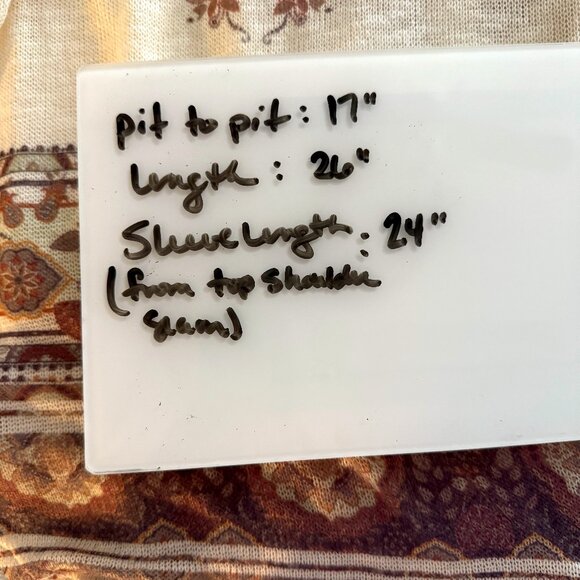 pit to pit: 17"
Length: 26"
Sleeve Length: 24"
(from top shoulder
seam)